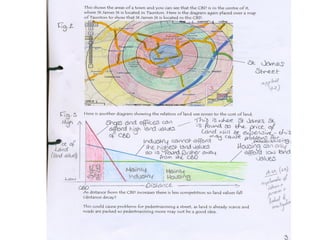 This shows the areas of a town and you can see that the CBD is in the centre of it,
where St James St is located in Taunton. Here is the diagram again placed over a map
of Taunton to show that St James St is located in the CBD.
Fig 2
St James
Street
Fig 3
Here is another diagram showing the relation of land use zones to the cost of land.
High
Shops and offices can
afford high land values
of CBD
This is where St James St
is found so the price of
land will be expensive - this
may cause problems for
pedestrianising.
Price of
Land
(land value)
Industry cannot afford
the highest land values
so is found further away
from the CBD
Housing can only
afford low land
values
Mainly
Industry
Mainly
Housing
CBD
Distance
As distance from the CBD increases there is less competition so land values fall
(distance decay)
This could cause problems for pedestrianising a street, as land is already scarce and
roads are packed so pedestrianising more may not be a good idea.
3